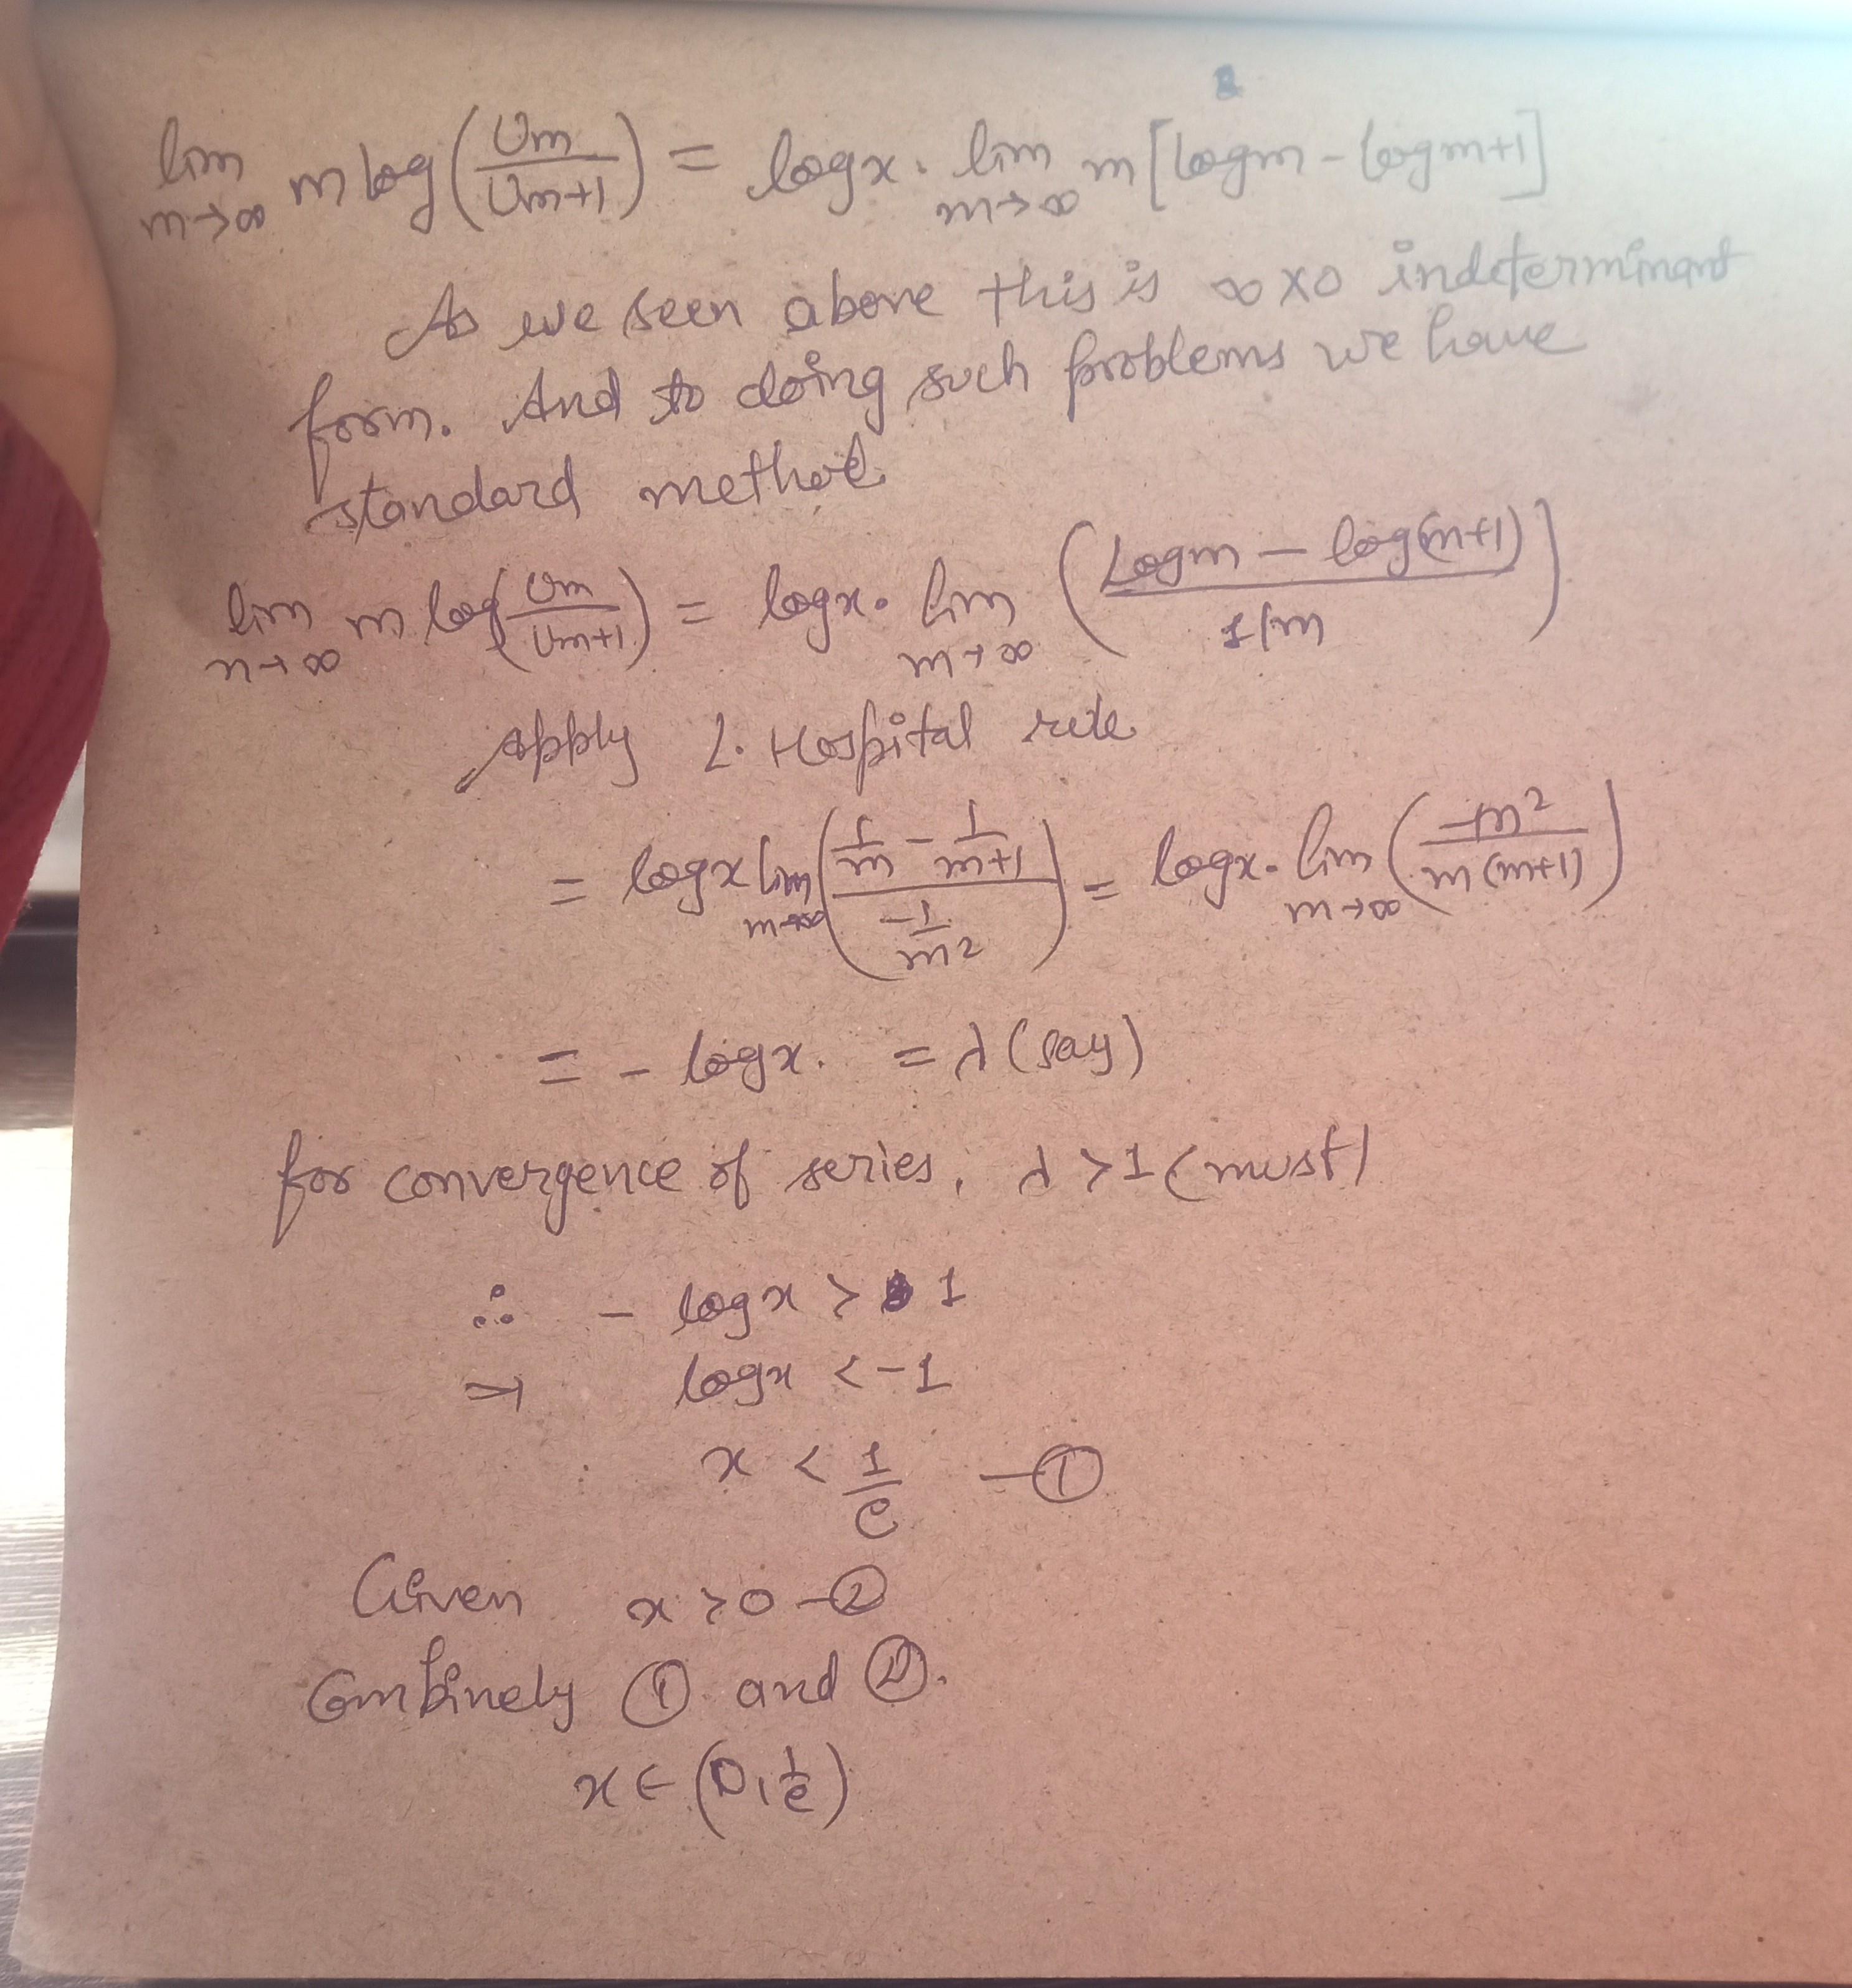 lim m→∞ m log(Um/Um+1) = log x. lim m→∞ m[log m - log m+1]
As we seen above this is ∞ x 0 indeterminant
form. And to doing such problems we have
standard method.
lim n→∞ m log(Um/Um+1) = log x. lim m→∞ ((Log m - log(m+1))/(1/m))
Apply L. Hospital rule
= log x lim m→∞ ((1/m - 1/(m+1))/(-1/m²)) = log x. lim m→∞ (-m²/(m(m+1)))
= - log x. = λ (say)
for convergence of series, λ > 1 (must)
∴ - log x > 1
⇒ log x < -1
x < 1/e —①
Given x > 0 —②
Combinely ① and ②.
x ∈ (0, 1/e)